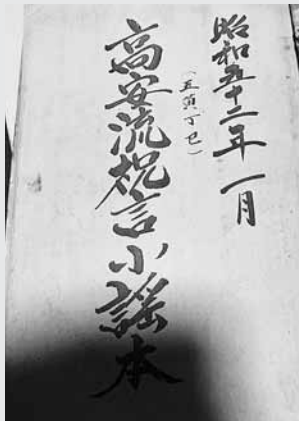 昭和五十二年一月
（五黄丁巳）
高安流祝言小謡本